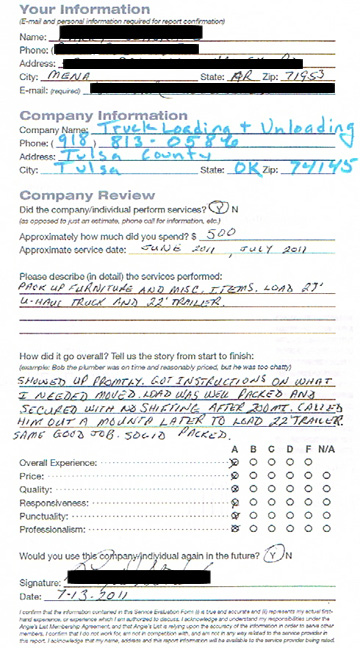 Your Information
(E-mail and personal information required for report confirmation)
Name:
Phone: (
Address:
City: MENA State: AR Zip: 71953
E-mail: (required)
Company Information
Company Name: Truck Loading + Unloading
Phone: (918) 813-0586
Address: Tulsa County
City: Tulsa State: OK Zip: 74145
Company Review
Did the company/individual perform services? Y N
(as opposed to just an estimate, phone call for information, etc.)
Approximately how much did you spend? $ 500
Approximate service date: JUNE 2011, JULY 2011
Please describe (in detail) the services performed:
PACK UP FURNITURE AND MISC. ITEMS. LOAD 27'
U-HAUL TRUCK AND 22' TRAILER.
How did it go overall? Tell us the story from start to finish:
(example: Bob the plumber was on time and reasonably priced, but he was too chatty)
SHOWED UP PROMTLY. GOT INSTRUCTIONS ON WHAT
I NEEDED MOVED. LOAD WAS WELL PACKED AND
SECURED WITH NO SHIFTING AFTER 200 MI. CALLED
HIM OUT A MOUNTH LATER TO LOAD 22' TRAILER.
SAME GOOD JOB. SOLID PACKED.
A B C D F N/A
Overall Experience:
Price:
Quality:
Responsiveness:
Punctuality:
Professionalism:
Would you use this company/individual again in the future? Y N
Signature:
Date: 7-13-2011
I confirm that the information contained in this Service Evaluation Form (i) is true and accurate and (ii) represents my actual first-
hand experience, or experience which I am authorized to discuss. I acknowledge and understand my responsibilities under the
Angie's List Membership Agreement, and that Angie's List is relying upon the accuracy of this information in order to serve other
members. I confirm that I do not work for, am not in competition with, and am not in any way related to the service provider in
this report. I acknowledge that my name, address and this report information will be available to the service provider being rated.